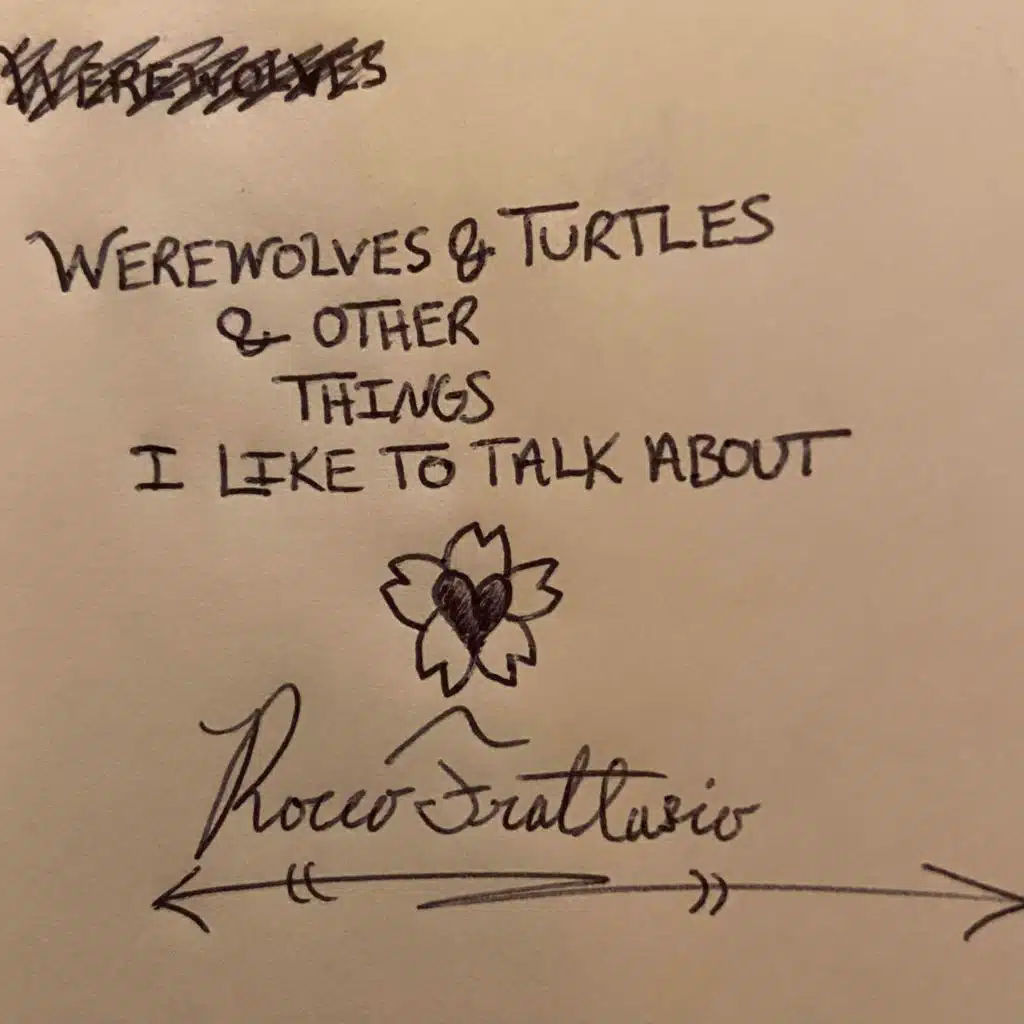 WEREWOLVES
WEREWOLVES & TURTLES
& OTHER
THINGS
I LIKE TO TALK ABOUT
Rocco Frattasio